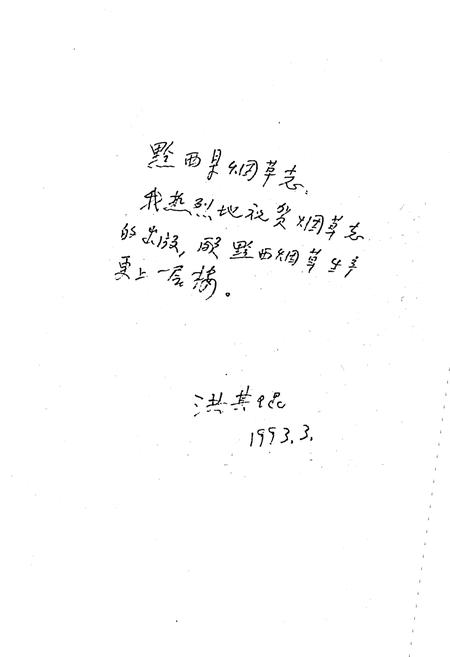 黔西县烟草志:
我热烈地祝贺烟草志
的出版,愿黔西烟草生产
更上一层楼。
洪其
1993.3.